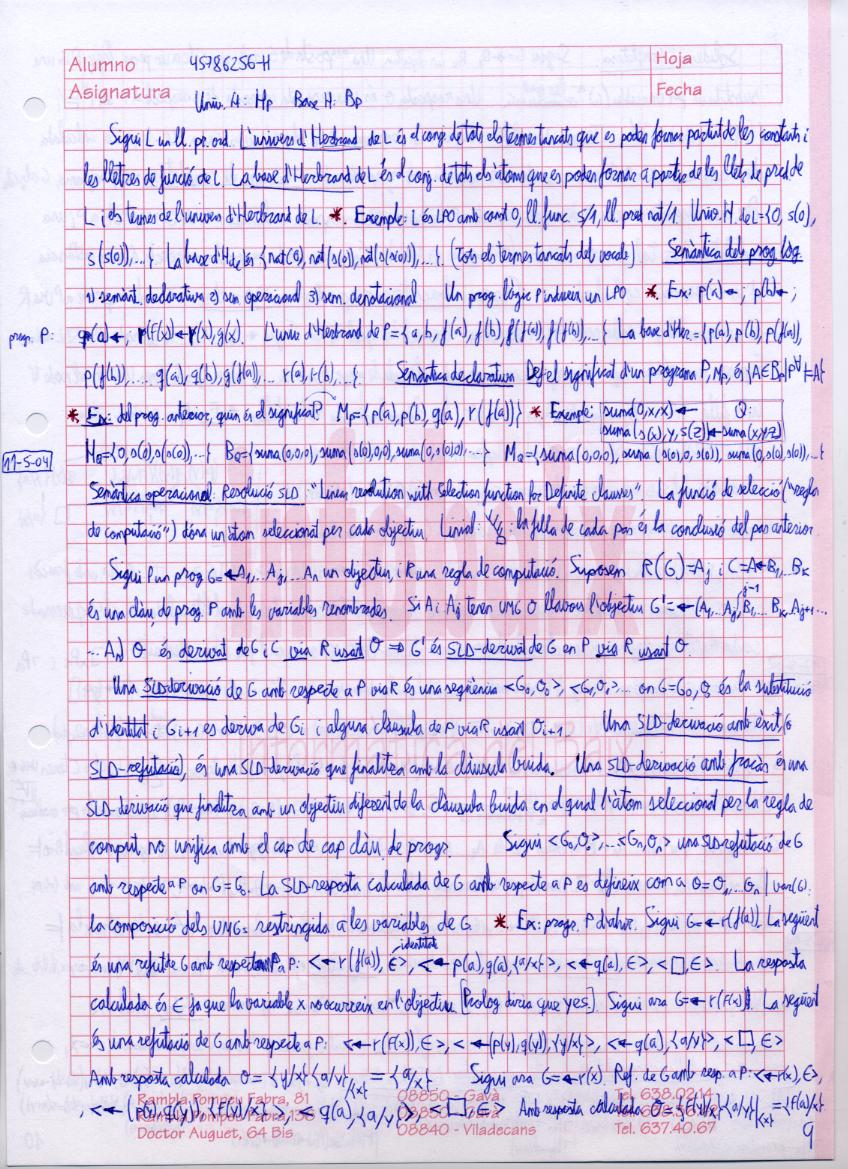 Alumno 45786256-H Hoja
Asignatura Univ. H: Hp Base H: Bp Fecha
Sigui L un ll. pr. ord. L'univers d'Herbrand de L és el conj. de tots els termes tancats que es poden formar partint de les constants i
les lletres de funció de L. La base d'Herbrand de L és el conj. de tots els àtoms que es poden formar a partir de les llet. de pred de
L i els termes de l'univers d'Herbrand de L. *. Exemple: L és LPO amb const 0, ll. func. s/1, ll. pred nat/1. Univ. H. de L={0, s(0),
s(s(0)),...} La base d'H de L és {nat(0), nat(s(0)), nat(s(s(0))),...} (Tots els termes tancats del vocab.) Semàntica dels prog log.
1) semànt. declarativa 2) sem operacional 3) sem. denotacional Un prog. lògic P indueix un LPO *. Ex: p(a)←; p(b)←;
progr. P: q(a)←; r(f(x))←p(x),q(x). L'univ. d'Herbrand de P={a,b,f(a),f(b),f(f(a)),f(f(b)),...} La base d'Her.={p(a),p(b),p(f(a)),
p(f(b)),... q(a),q(b),q(f(a)),... r(a),r(b),...} Semàntica declarativa Def el significat d'un programa P, Mp, és {A∈Bp|P∀ ⊨A}
* Ex: del prog. anterior, quin és el significat? Mp={p(a),p(b),q(a),r(f(a))} * Exemple: suma(0,x,x)← Q:
suma(s(x),y,s(z))←suma(x,y,z)
11-5-04 HQ={0,s(0),s(s(0)),...} BQ={suma(0,0,0), suma(s(0),0,0), suma(0,s(0),0),...} MQ={suma(0,0,0), suma(s(0),0,s(0)), suma(0,s(0),s(0)),...}
Semàntica operacional: Resolució SLD: "Linear resolution with Selection function for Definite clauses" La funció de selecció ("regla
de computació") dóna un àtom seleccionat per cada objectiu. Linial: la filla de cada pas és la conclusió del pas anterior
Sigui P un prog. G=←A1,...Aj,...An un objectiu, i R una regla de computació. Suposem R(G)=Aj i C=A←B1,...Bk
és una clàu. de prog. P amb les variables renombrades. Si A i Aj tenen UMG θ llavors l'objectiu G'=←(A1,...Aj-1,B1,...Bk,Aj+1,...
...An)θ és derivat de G i C via R usant θ ⇒ G' és SLD-derivat de G en P via R usant θ.
Una SLD-derivació de G amb respecte a P via R és una seqüència <G0,θ0>, <G1,θ1>,... on G=G0, θ0 és la substitució
d'identitat i Gi+1 es deriva de Gi i alguna clàusula de P via R usant θi+1 Una SLD-derivació amb èxit (o
SLD-refutació), és una SLD-derivació que finalitza amb la clàusula buida. Una SLD-derivació amb fracàs és una
SLD-derivació que finalitza amb un objectiu diferent de la clàusula buida en el qual l'àtom seleccionat per la regla de
comput. no unifica amb el cap de cap clàu. de progr. Sigui <G0,θ0>,...<Gn,θn> una SLD-refutació de G
amb respecte a P on G=G0. La SLD-resposta calculada de G amb respecte a P es defineix com a θ=θ1...θn | var(G):
la composició dels UMGs restringida a les variables de G. *. Ex: progr. P d'abans. Sigui G=←r(f(a)). La següent
identitat
és una refut de G amb respecte a P: <←r(f(a)),ϵ>, <←p(a),q(a),{a/x}>, <←q(a),ϵ>, <□,ϵ>. La resposta
calculada és ϵ ja que la variable x no ocurreix en l'objectiu. [Prolog diria que yes]. Sigui ara G=←r(f(x)). La següent
és una refutació de G amb respecte a P: <←r(f(x)),ϵ>, <←(p(y),q(y)),{y/x}>, <←q(a),{a/y}>, <□,ϵ>
Amb resposta calculada θ={y/x}{a/y}|{x} = {a/x}. Sigui ara G=←r(x). Ref. de G amb resp. a P: <←r(x),ϵ>,
<←(p(y),q(y)),{f(y)/x}>, <q(a),{a/y}>, <□,ϵ> Amb resposta calculada θ={f(y)/x}{a/y}|{x}={f(a)/x}
Rambla Pompeu Fabra, 81 08850 - Gavà Tel 638.02.14
Doctor Auguet, 64 Bis 08840 - Viladecans Tel. 637.40.67
9